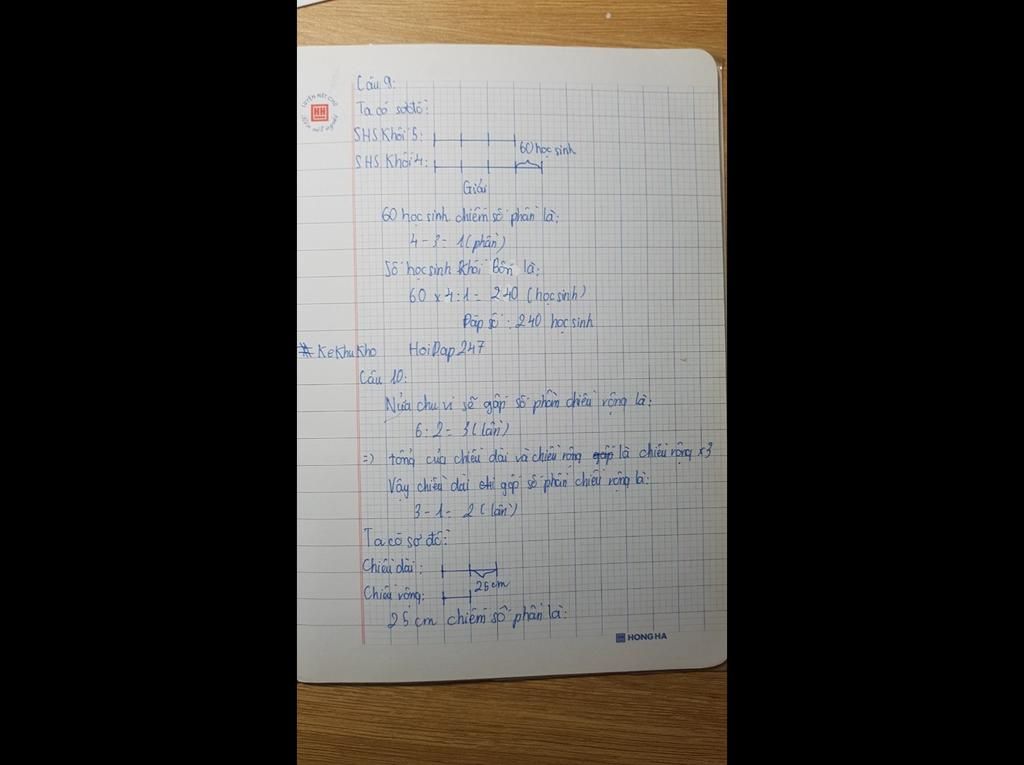 Câu 9:
Ta có sơ đồ:
SHS Khối 5:
60 học sinh
SHS Khối 4:
Giải
60 học sinh chiếm số phần là:
4 - 3 = 1 (phần)
Số học sinh khối Bốn là:
60 x 4 : 1 = 240 (học sinh)
Đáp số : 240 học sinh
# KeKhuKho HoiDap247
Câu 10:
Nửa chu vi sẽ gấp số phần chiều rộng là:
6 : 2 = 3 (lần)
=) tổng của chiều dài và chiều rộng là chiều rộng x3
Vậy chiều dài gấp số phần chiều rộng là:
3 - 1 = 2 (lần)
Ta có sơ đồ:
Chiều dài :
25 cm
Chiều rộng:
25 cm chiếm số phần là:
HH
HONG HA